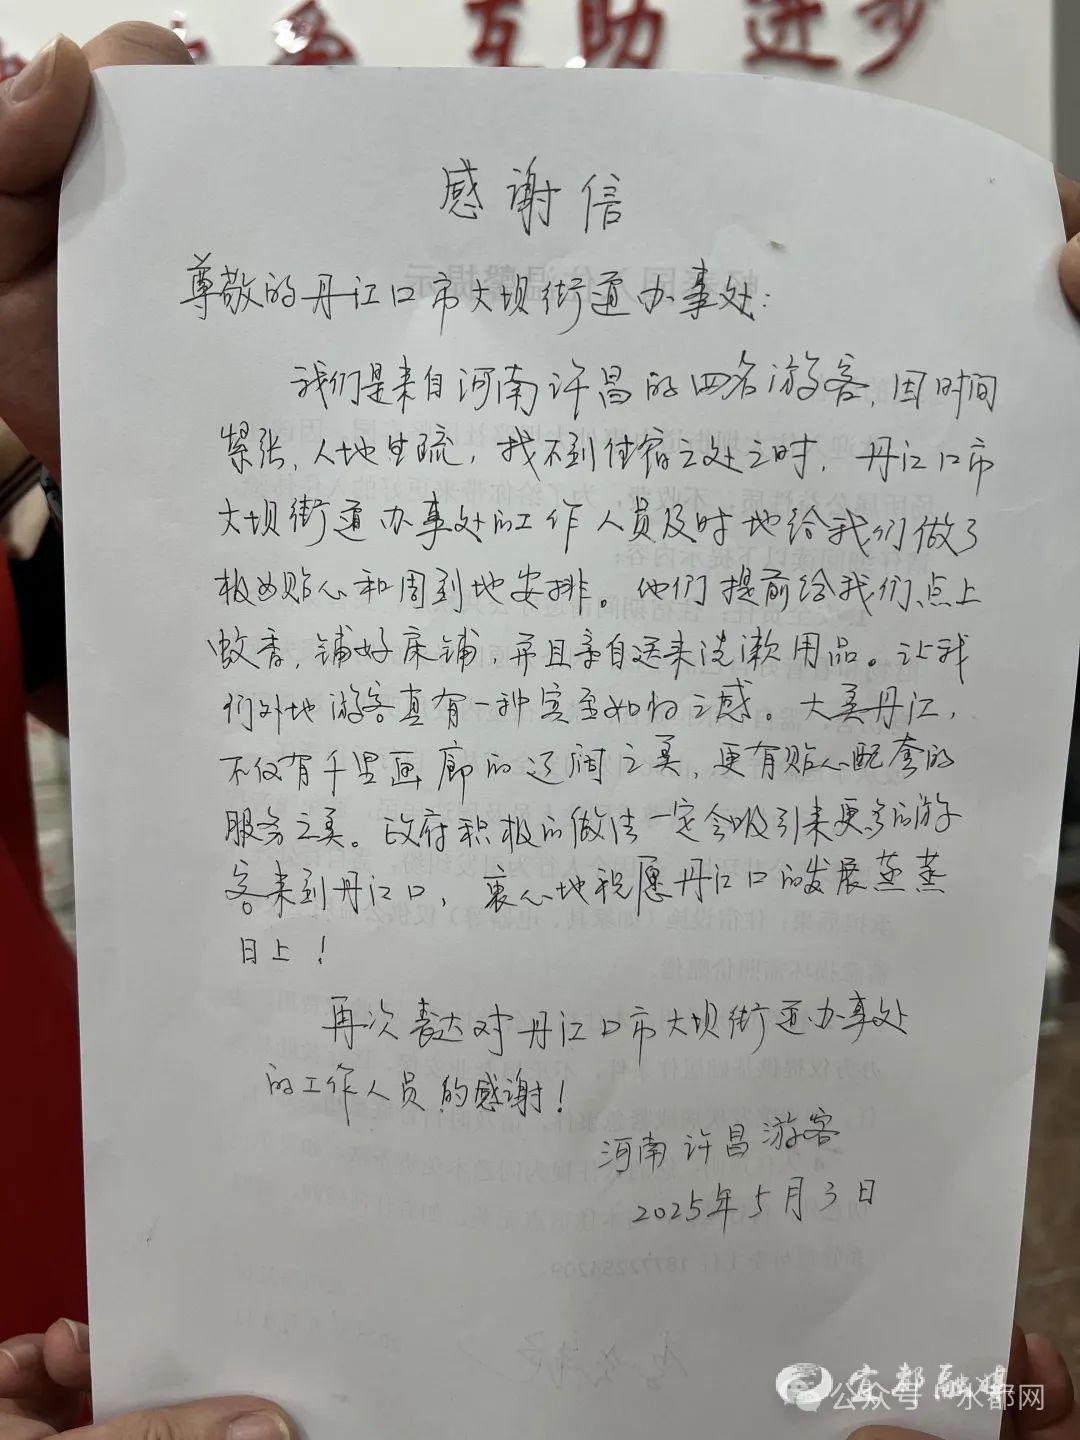 互助 进步
感谢信
尊敬的丹江口市大坝街道办事处：
我们是来自河南许昌的四名游客，因时间
紧张，人地生疏，找不到住宿之处之时，丹江口市
大坝街道办事处的工作人员及时地给我们做了
极为贴心和周到地安排。他们提前给我们点上
蚊香，铺好床铺，并且亲自送来洗漱用品。让我
们外地游客真有一种宾至如归之感。大美丹江，
不仅有千里画廊的辽阔之美，更有贴心配套的
服务之美。政府积极的做法一定会吸引来更多的游
客来到丹江口，衷心地祝愿丹江口的发展蒸蒸
日上！
再次表达对丹江口市大坝街道办事处
的工作人员的感谢！
河南许昌游客
2025年5月3日
公众号 水都网